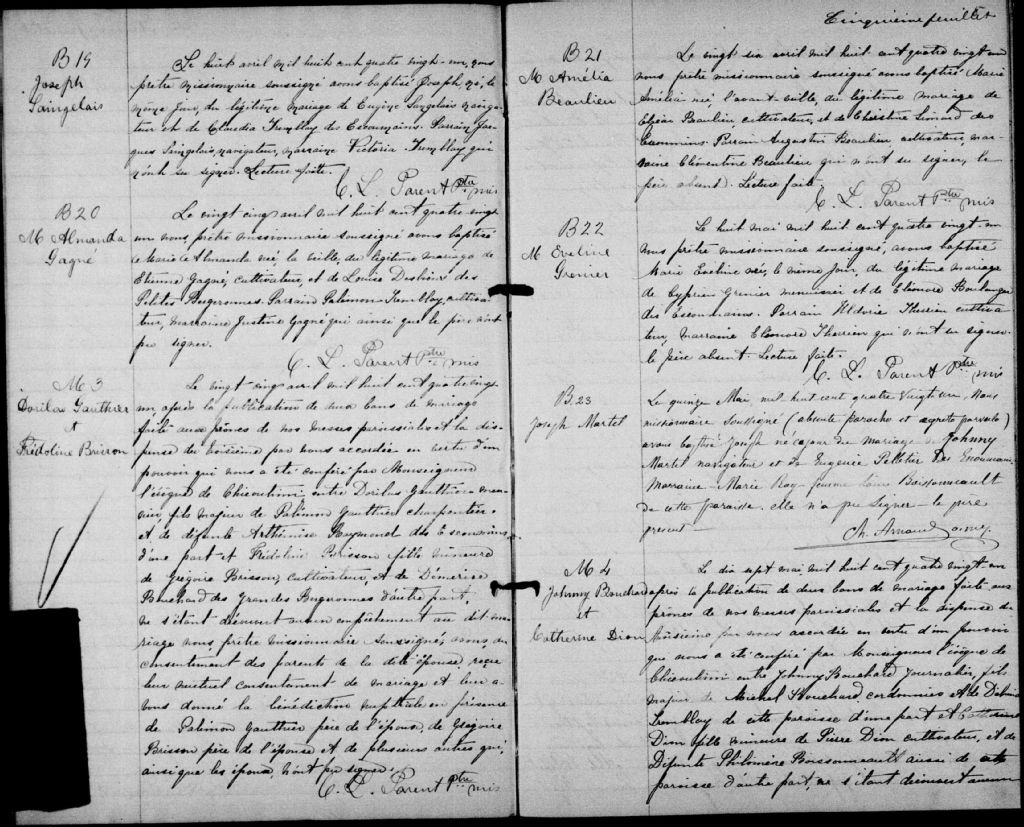 B 19
Joseph
Saingelais
Le huit avril mil huit cent quatre vingt-un, nous
prêtre missionnaire soussigné avons baptisé Joseph, né, le
même jour, du légitime mariage de Eugène Saingelais naviga-
teur et de Claudia Tremblay des Escoumains. Parrain Jac-
ques Saingelais, navigateur, marraine Victoria Tremblay qui
n'ont su signer. Lecture faite.
C. L. Parent Ptre mis
B 20
M Almanda
Gagné
Le vingt cinq avril mil huit cent quatre vingt
un nous prêtre missionnaire soussigné avons baptisé
Marie Almanda née, la veille, du légitime mariage de
Etienne Gagné, cultivateur, et de Louise Desbiens des
Petites Bergeronnes. Parrain Salomon Tremblay, cultiva-
teur, marraine Justine Gagné qui ainsi que le père n'ont
pu signer.
C. L. Parent Ptre mis
M 3
Dorilas Gauthier
et
Frédoline Brisson
Le vingt cinq avril mil huit cent quatre vingt
un, après la publication de deux bans de mariage
faite aux prônes de nos messes paroissiales et la dis-
pense du troisième par nous accordée en vertu d'un
pouvoir qui nous a été conféré par Monseigneur
l'évêque de Chicoutimi entre Dorilas Gauthier
fils majeur de Palémon Gauthier charpentier
et de défunte Arthémise Raymond des Escoumins,
d'une part et Frédoline Brisson fille mineure
de Grégoire Brisson, cultivateur, et de Démerise
Bouchard des Grandes Bergeronnes d'autre part,
ne s'étant découvert aucun empêchement au dit ma-
riage nous, prêtre missionnaire soussigné, avons, du
consentement des parents de la dite épouse, reçu
leur mutuel consentement de mariage et leur a-
vons donné la bénédiction nuptiale en présence
de Palémon Gauthier père de l'époux, de Grégoire
Brisson père de l'épouse et de plusieurs autres qui,
ainsi que les époux, n'ont pu signer.
C. L. Parent Ptre mis
Cinquième feuillet
B 21
M Amélia
Beaulieu
Le vingt six avril mil huit cent quatre vingt un
nous prêtre missionnaire soussigné avons baptisé Marie
Amélia née, l'avant-veille, du légitime mariage de
Elzéar Beaulieu cultivateur, et de Christine Simard des
Escoumins. Parrain Augustin Beaulieu cultivateur, mar-
raine Clémentine Beaulieu qui n'ont su signer, le
père absent. Lecture faite.
C. L. Parent Ptre mis
B 22
M Eveline
Grenier
Le huit mai mil huit cent quatre vingt-un
nous prêtre missionnaire soussigné, avons baptisé
Marie Eveline née, le même jour, du légitime mariage
de Cyprien Grenier menuisier et de Eléonore Boulanger
des Escoumains. Parrain Therien cultiva-
teur, marraine Eléonore Therien qui n'ont su signer.
le père absent. Lecture faite.
C. L. Parent Ptre mis
B. 23
Joseph Martel
Le quinze Mai, mil huit cent quatre Vingt un, Nous
missionnaire Soussigné (absente parocho et parvulo)
avons baptisé Joseph né du mariage de Johnny
Martel navigateur et de Eugénie Pelletier Des Escoumains
Marraine Marie Roy femme Louis Boissonneault
de cette paroisse. elle n'a pu Signer le père
présent
Ch. Arnaud o.m.i.
M 4
Johnny Bouchard
et
Catherine Dion
Le dix sept mai mil huit cent quatre vingt un
après la publication de deux bans de mariage faite aux
prônes de nos messes paroissiales et la dispense du
troisième par nous accordée en vertu d'un pouvoir
que nous a été conféré par Monseigneur l'évêque de
Chicoutimi entre Johnny Bouchard journalier, fils
majeur de Michel Bouchard cordonnier et de Delima
Tremblay de cette paroisse d'une part et Catherine
Dion fille mineure de Pierre Dion cultivateur, et de
Défunte Philomène Boissonneault aussi de cette
paroisse d'autre part, ne s'étant découvert aucun